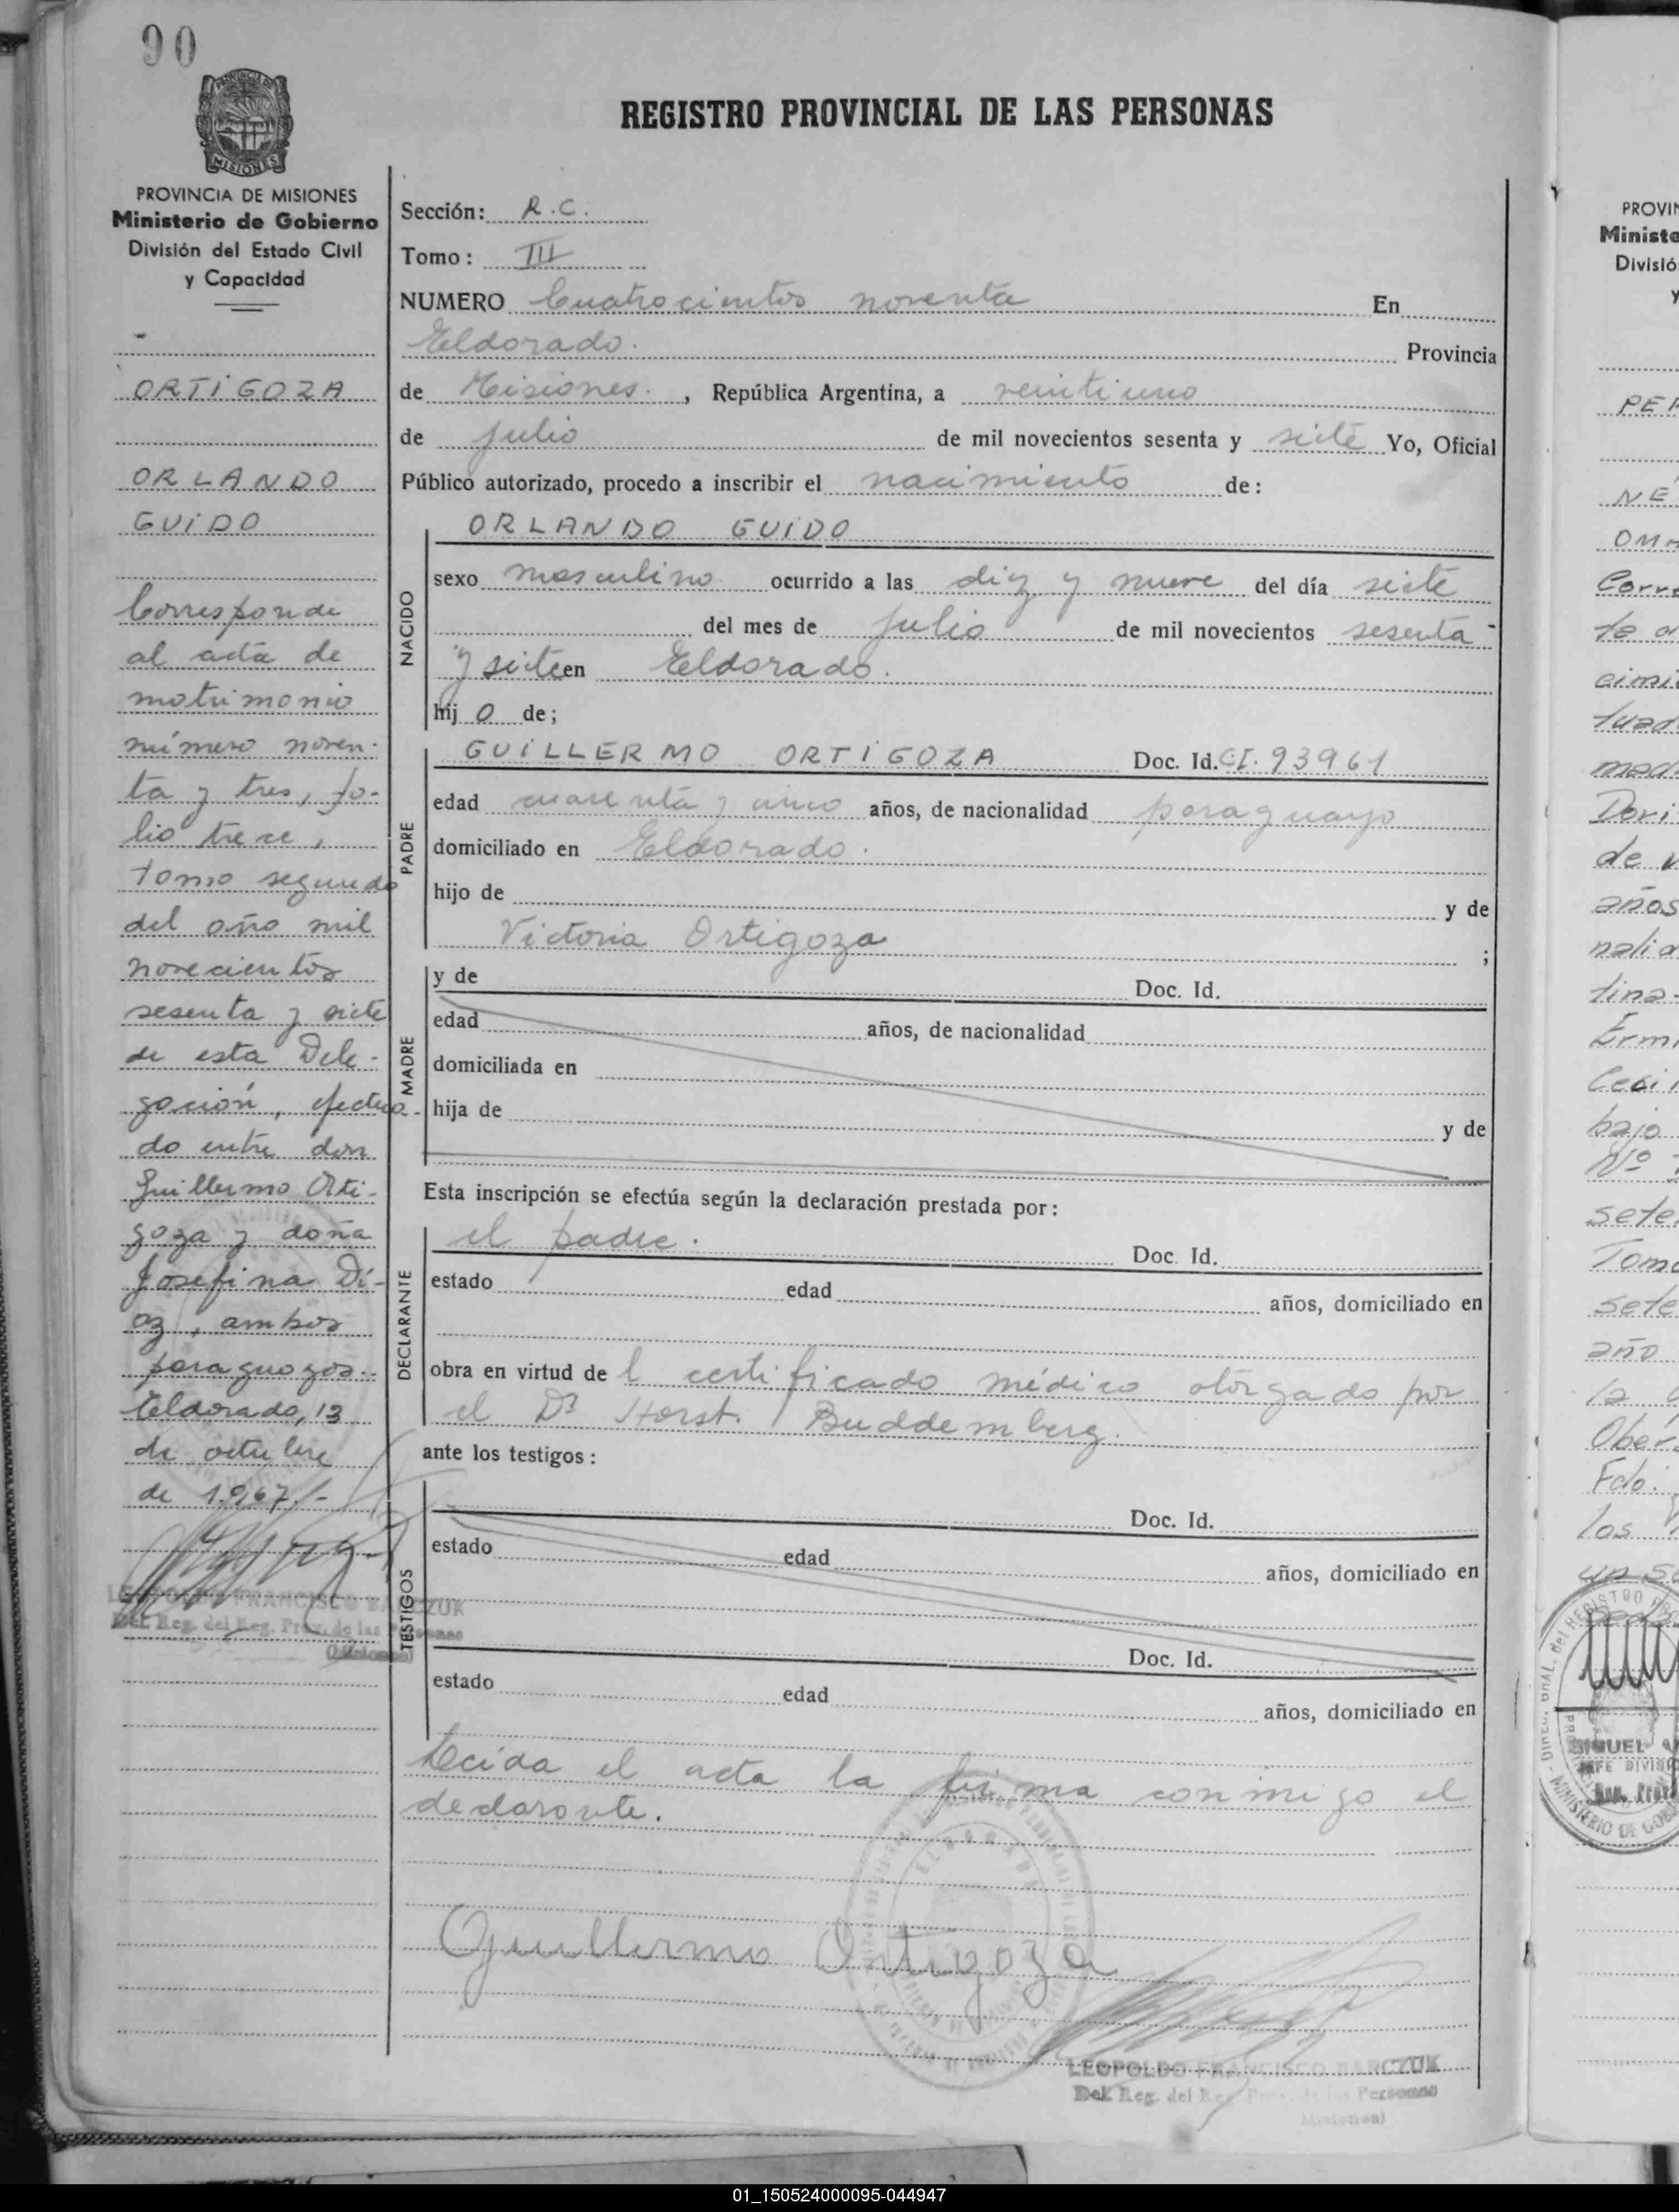 90
REGISTRO PROVINCIAL DE LAS PERSONAS
MISIONES
PROVINCIA DE MISIONES
Ministerio de Gobierno
División del Estado Civil
y Capacidad
ORTIGOZA
ORLANDO
GUIDO
Corresponde
al acta de
matrimonio
número noven-
ta y tres, fo-
lio trece,
tomo segundo
del año mil
novecientos
sesenta y siete
de esta Dele-
gación, efectua-
do entre don
Guillermo Orti-
goza y doña
Josefina Dí-
az, ambos
paraguayos.-
Eldorado, 13
de octubre
de 1.967/-
LEOPOLDO FRANCISCO BARCZUK
Del. Reg. del Reg. Prov. de las Personas
(Misiones)
Sección: R.C.
Tomo: III
NUMERO Cuatrocientos noventa En
Eldorado. Provincia
de Misiones. , República Argentina, a veintiuno
de julio de mil novecientos sesenta y siete Yo, Oficial
Público autorizado, procedo a inscribir el nacimiento de:
NACIDO
ORLANDO GUIDO
sexo masculino ocurrido a las diez y nueve del día siete
del mes de julio de mil novecientos sesenta
y siete en Eldorado.
hij o de;
PADRE
GUILLERMO ORTIGOZA Doc. Id. CI. 93961
edad cuarenta y cinco años, de nacionalidad paraguayo
domiciliado en Eldorado.
hijo de y de
Victoria Ortigoza ;
MADRE
y de Doc. Id.
edad años, de nacionalidad
domiciliada en
hija de y de
Esta inscripción se efectúa según la declaración prestada por:
DECLARANTE
el padre. Doc. Id.
estado edad años, domiciliado en
obra en virtud de l certificado médico otorgado por
el Dr Horst. Buddemberg.
ante los testigos:
TESTIGOS
Doc. Id.
estado edad años, domiciliado en
Doc. Id.
estado edad años, domiciliado en
Leída el acta la firma conmigo el
declarante.
Guillermo Ortigoza
LEOPOLDO FRANCISCO BARCZUK
Del. Reg. del Reg. Prov. de las Personas
Misiones)
PROVIN
Ministe
Divisió
y
PER
NE
OMA
Corre
te a
cimi
tuad
mad
Dori
de v
años
nalid
tina-
Ermi
Ceci
bajo
Nº
sete
Tomo
sete
año
la
Ober
Fdo.
los
01_150524000095-044947